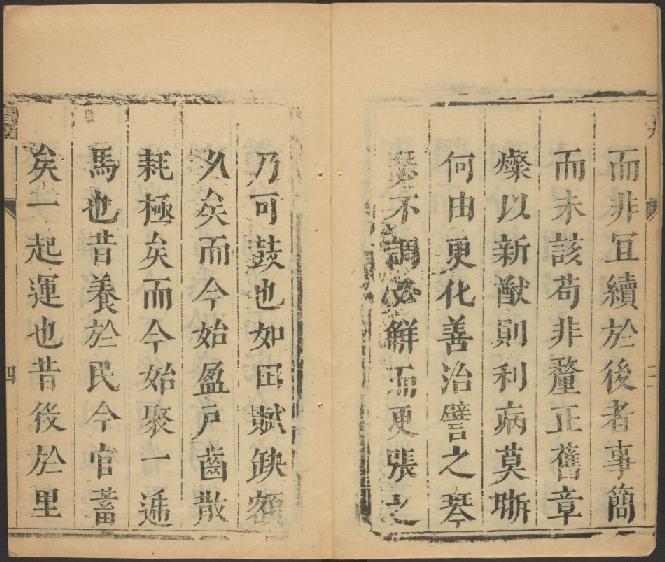 而非宜續於後者事簡
而未該苟非釐正舊章
燦以新猷則利病莫晰
何由更化善治譬之琴
瑟不調必觧而更張之
乃可鼓也如田賦缺額
久矣而今始盈戶齒散
耗極矣而今始聚一遞
馬也昔養於民今官蓄
矣一起運也昔後於里
四